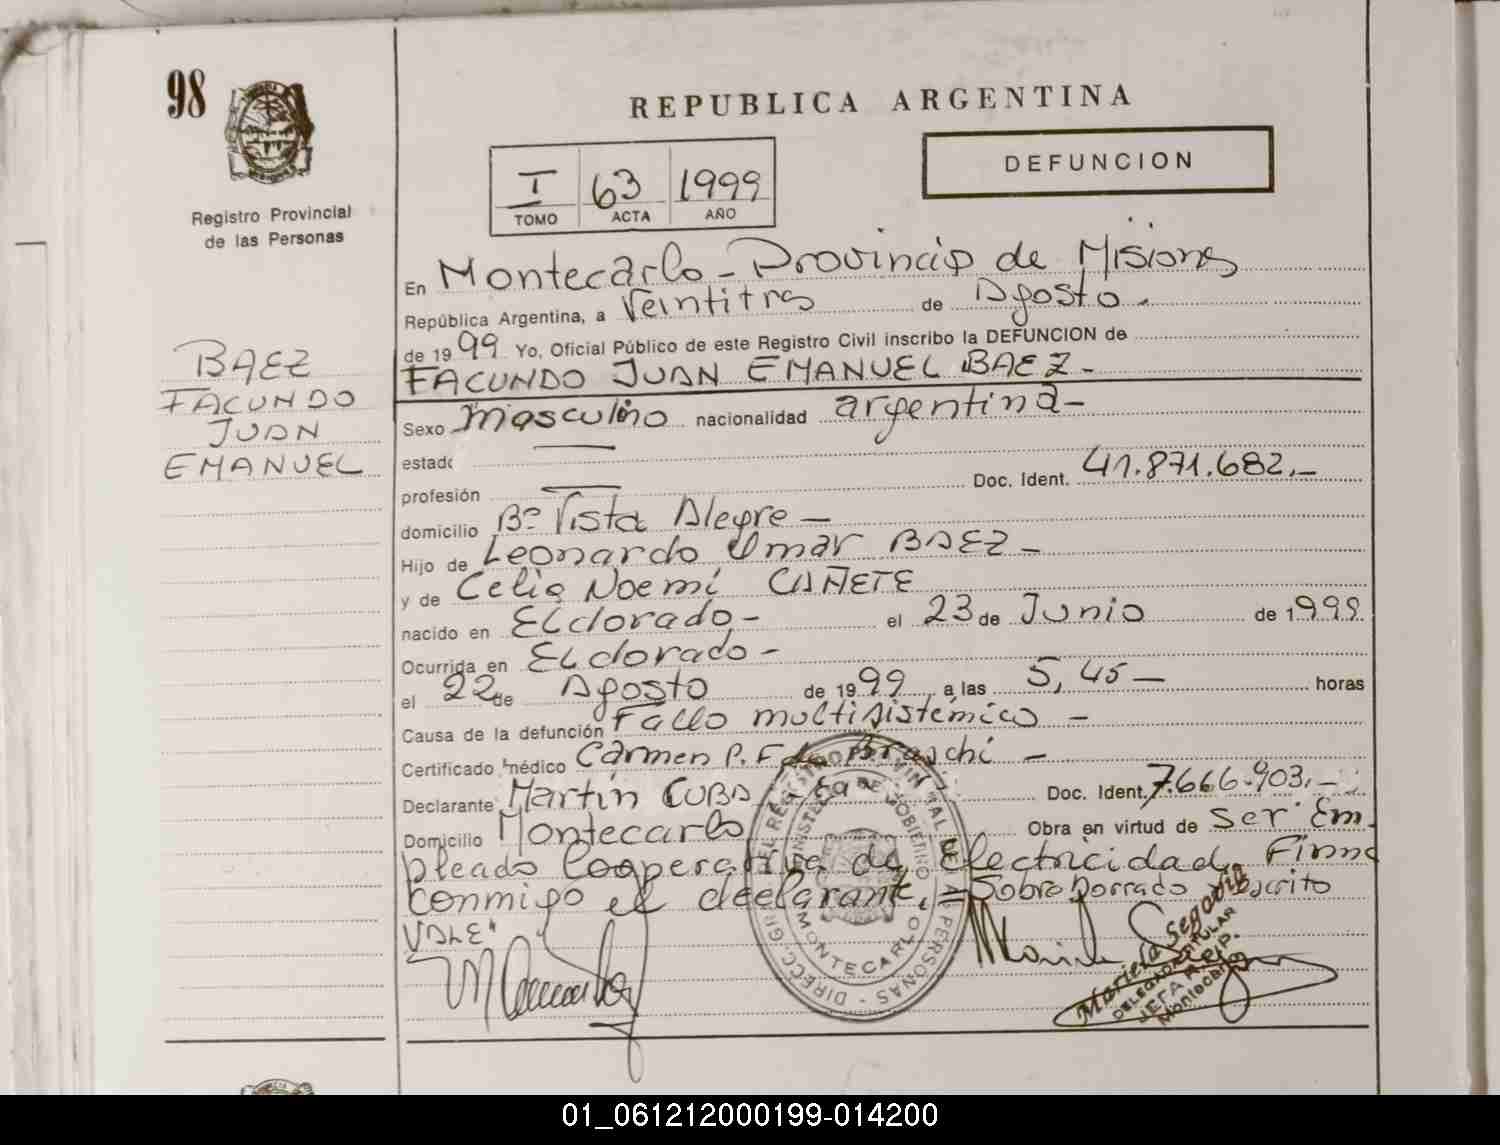 98
Registro Provincial
de las Personas
BAEZ
FACUNDO
JUAN
EMANUEL
REPUBLICA ARGENTINA
I 63 1999
TOMO ACTA AÑO
DEFUNCION
En Montecarlo - Provincia de Misiones
República Argentina, a Veintitres de Agosto.
de 1999 Yo, Oficial Público de este Registro Civil inscribo la DEFUNCION de
FACUNDO JUAN EMANUEL BAEZ -
Sexo masculino nacionalidad argentina -
estado
Doc. Ident. 41.871.682.-
profesión
domicilio Bº Vista Alegre -
Hijo de Leonardo Omar BAEZ -
y de Celia Noemí CAÑETE
nacido en Eldorado - el 23 de Junio de 1999
Ocurrida en Eldorado -
el 22 de Agosto de 1999 a las 5,45 - horas
Causa de la defunción Fallo multisistémico -
Certificado médico Carmen P. F. de Braschi -
Declarante Martín CUBA Doc. Ident. 7.666.903.-
Domicilio Montecarlo Obra en virtud de Ser Em
pleado Cooperativa de Electricidad, Firma
conmigo el declarante.= Sobre borrado
VALE"
DIRECC. GRAL. DEL REGISTRO PROVINCIAL DE LAS PERSONAS
MINISTERIO DE GOBIERNO
MONTECARLO
Mariela Segovia
DELEGADA TITULAR
JEFA R.P.P.
Montecarlo
01_061212000199-014200